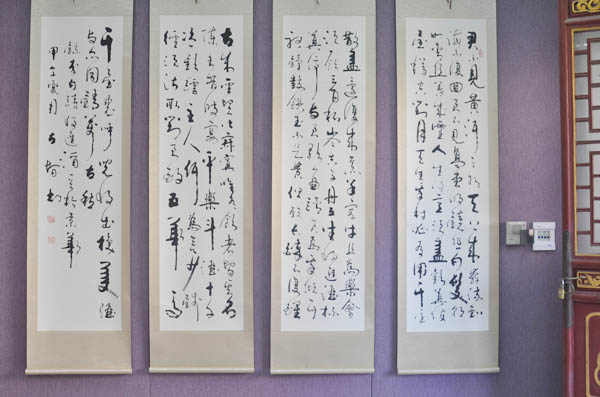 君不見黃河之水天上來奔流到
海不復回君不見高堂明鏡悲白髮朝
如青絲暮成雪人生得意須盡歡莫使
金樽空對月天生我材必有用千金
散盡還復來烹羊宰牛且為樂會
須一飲三百杯岑夫子丹丘生將進酒杯
莫停與君歌一曲請君為我傾耳聽
鐘鼓饌玉不足貴但願長醉不復醒
古來聖賢皆寂寞唯有飲者留其名
陳王昔時宴平樂斗酒十千
恣歡謔主人何為言少錢
徑須沽取對君酌五華馬
千金裘呼兒將出換美酒
與爾同銷萬古愁
錄李白詩將進酒一首於京華
甲午夏月 書